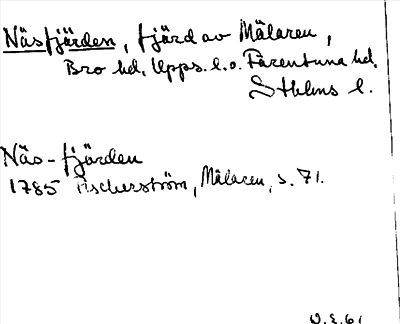 Näsfjärden, fjärd av Mälaren,
Bro hd. Upps. l. o. Färentuna hd.
Sthlms l.
Näs-fjärden
1785 Fischerström, Mälaren, s. 71.